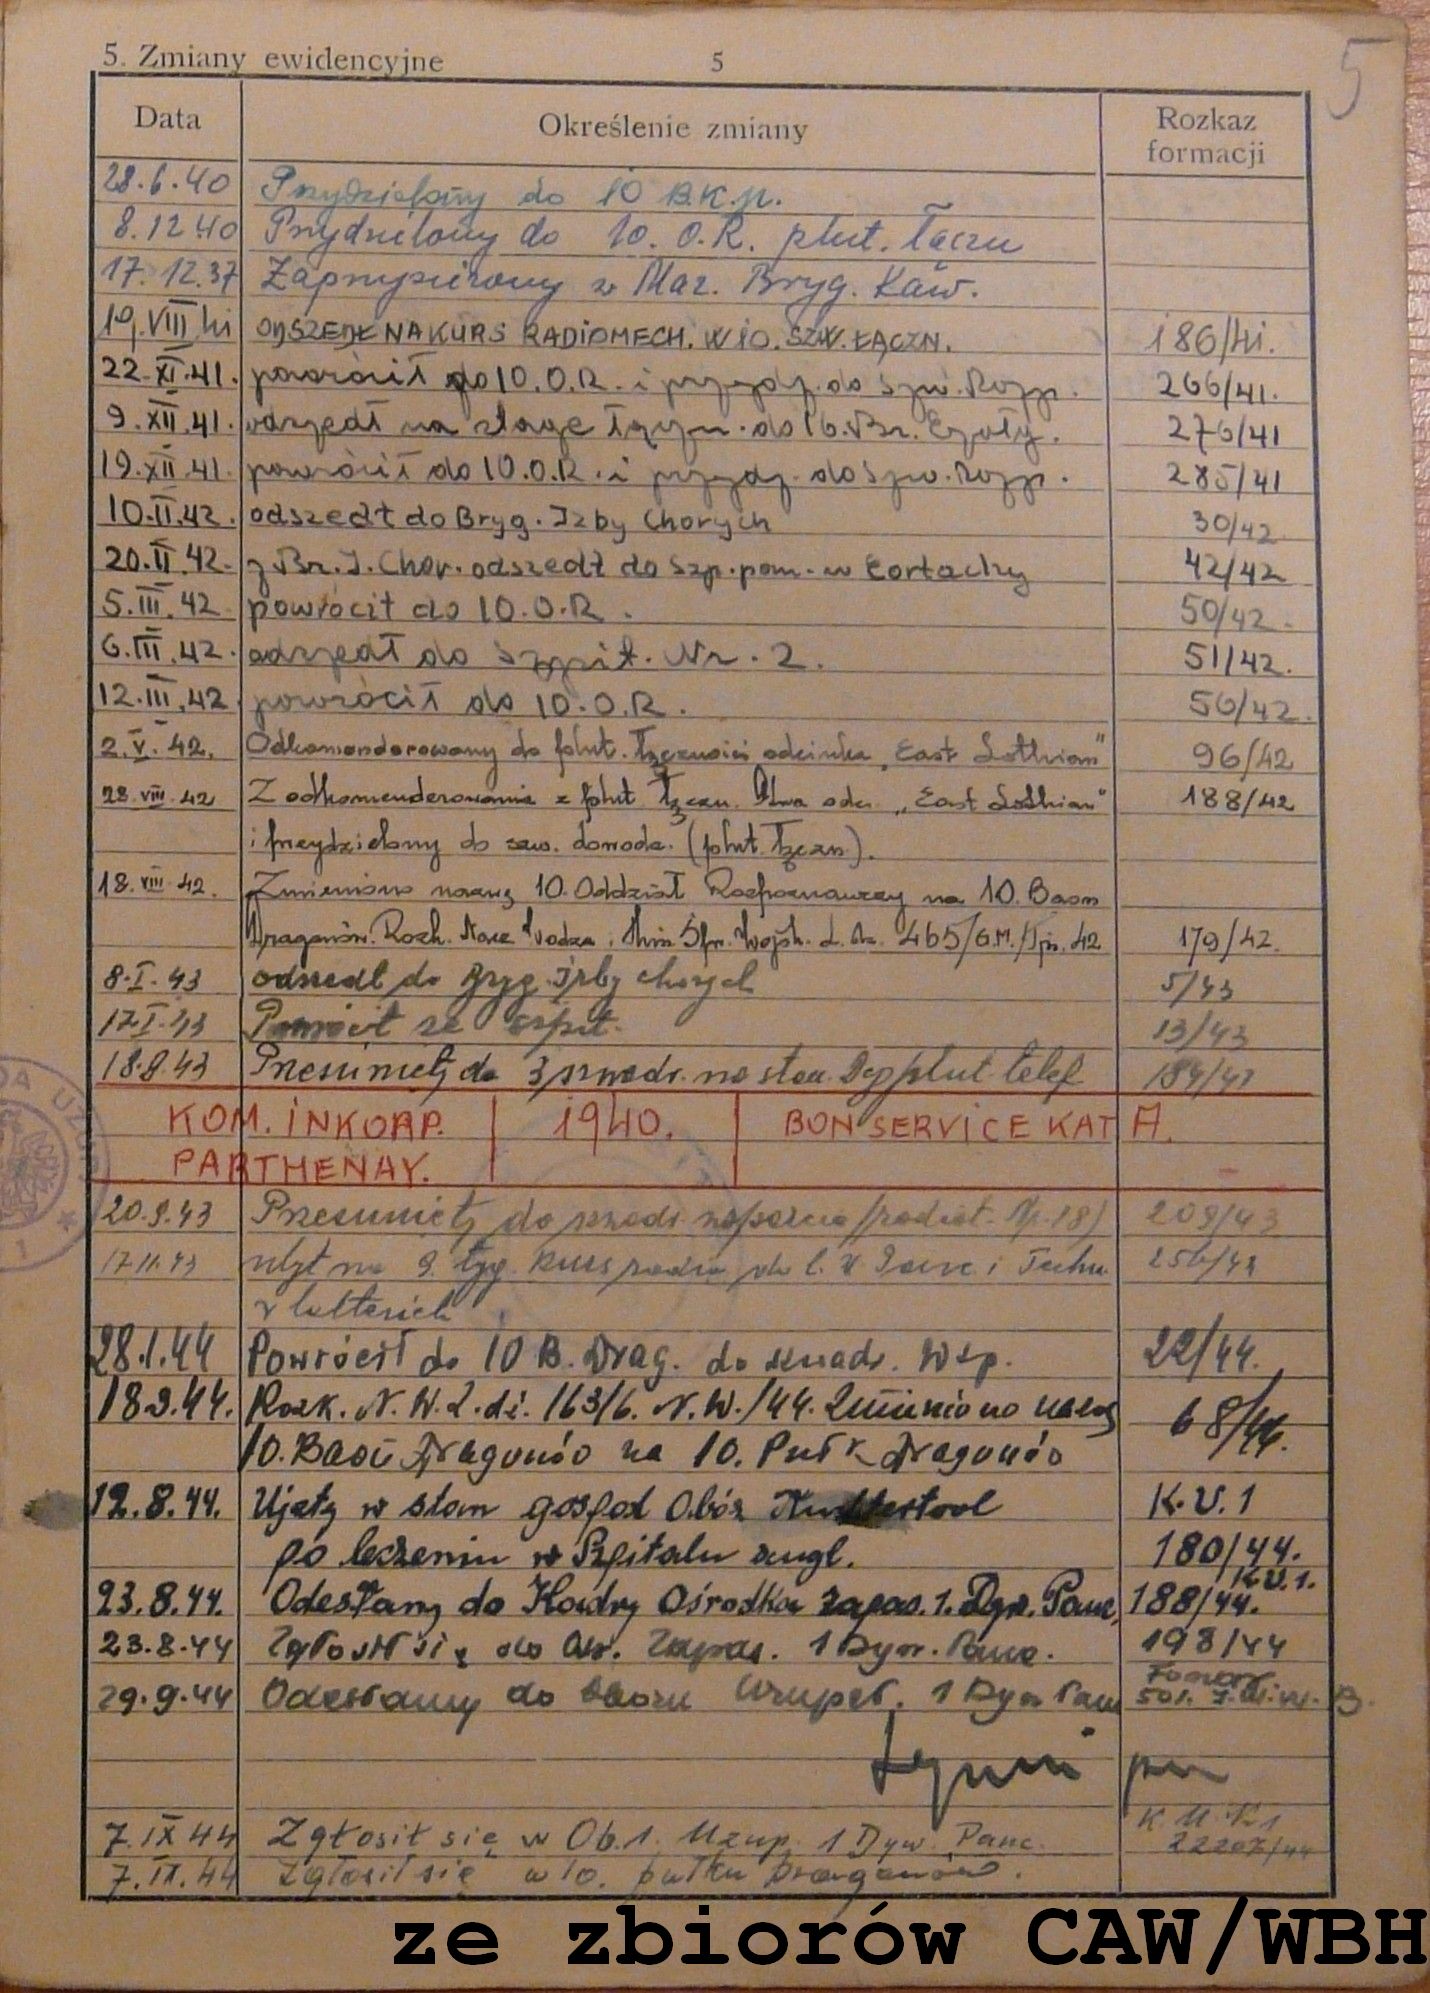 5. Zmiany ewidencyjne 5 5
Data Określenie zmiany Rozkaz formacji
28.6.40 Przydzielony do 10 B.K.p.
8.12.40 Przydzielony do 10. O.R. plut. Łączn
17.12.37 Zaprzysiężony w Maz. Bryg. Kaw.
19.VIII.41 ODSZEDŁ NA KURS RADIOMECH. W 10. SZW. ŁĄCZN. 186/41.
22.XI.41. powrócił do 10.O.R. i przydz. do Szw. Rozp. 266/41.
9.XII.41. odszedł na staże łączn. do 16. Br. Czołg. 276/41
19.XII.41. powrócił do 10.O.R. i przydz. do Szw. Rozp. 285/41
10.II.42. odszedł do Bryg. Izby Chorych 30/42
20.II.42. z Br. I. Chor. odszedł do Szp. pom. w Cortachy 42/42
5.III.42. powrócił do 10.O.R. 50/42.
6.III.42. odszedł do Szpit. Nr. 2. 51/42.
12.III.42 powrócił do 10.O.R. 56/42.
2.V.42. Odkomenderowany do plut. łączności odcinka „East Lothian" 96/42
28.VIII.42 Z odkomenderowania z plut. łączn. odc. „East Lothian" 188/42
i przydzielony do szw. dowodz. (plut. łączn.).
18.VIII.42. Zmieniono nazwę 10. Oddział Rozpoznawczy na 10. Baon
Dragonów. Rozk. Nacz. Wodza i Min. Spr. Wojsk. L. dz. 465/G.M./Tjn. 42 179/42.
8.I.43 odszedł do Bryg. Izby chorych 5/43
17.I.43 Powrócił ze szpit. 13/43
18.8.43 Przesunięty do 3 szwadr. na stan. plut. telef 184/43
KOM. INKORP. | 1940. | BON SERVICE KAT A.
PARTHENAY.
20.9.43 Przesunięty do szwadr. wsparcia 209/43
17.11.43 ubył na 9. tyg. kurs radio do C. W. Panc. i Techn. 256/43
28.1.44 Powrócił do 10 B. Drag. do szwadr. Wsp. 22/44.
18.9.44. Rozk. N.W. L.dz. 163/G.N.W./44. Zmieniono nazwę 68/44.
10. Baon Dragonów na 10. Pułk Dragonów
12.8.44. Ujęty w stan gospod. Obóz K.U.1
po leczeniu w Szpitalu angl. 180/44.
23.8.44. Odesłany do Kadry Ośrodka zapas. 1. Dyw. Panc. 188/44. K.U.1.
23.8.44 Zgłosił się do Ośr. Zapas. 1 Dyw. Panc. 198/44
29.9.44 Odesłany do obozu Uzupeł. 1 Dyw Panc
7.IX 44 Zgłosił się w Ob. 1. Uzup. 1 Dyw. Panc.
7.IX.44 Zgłosił się w 10. pułku Dragonów.
ze zbiorów CAW/WBH